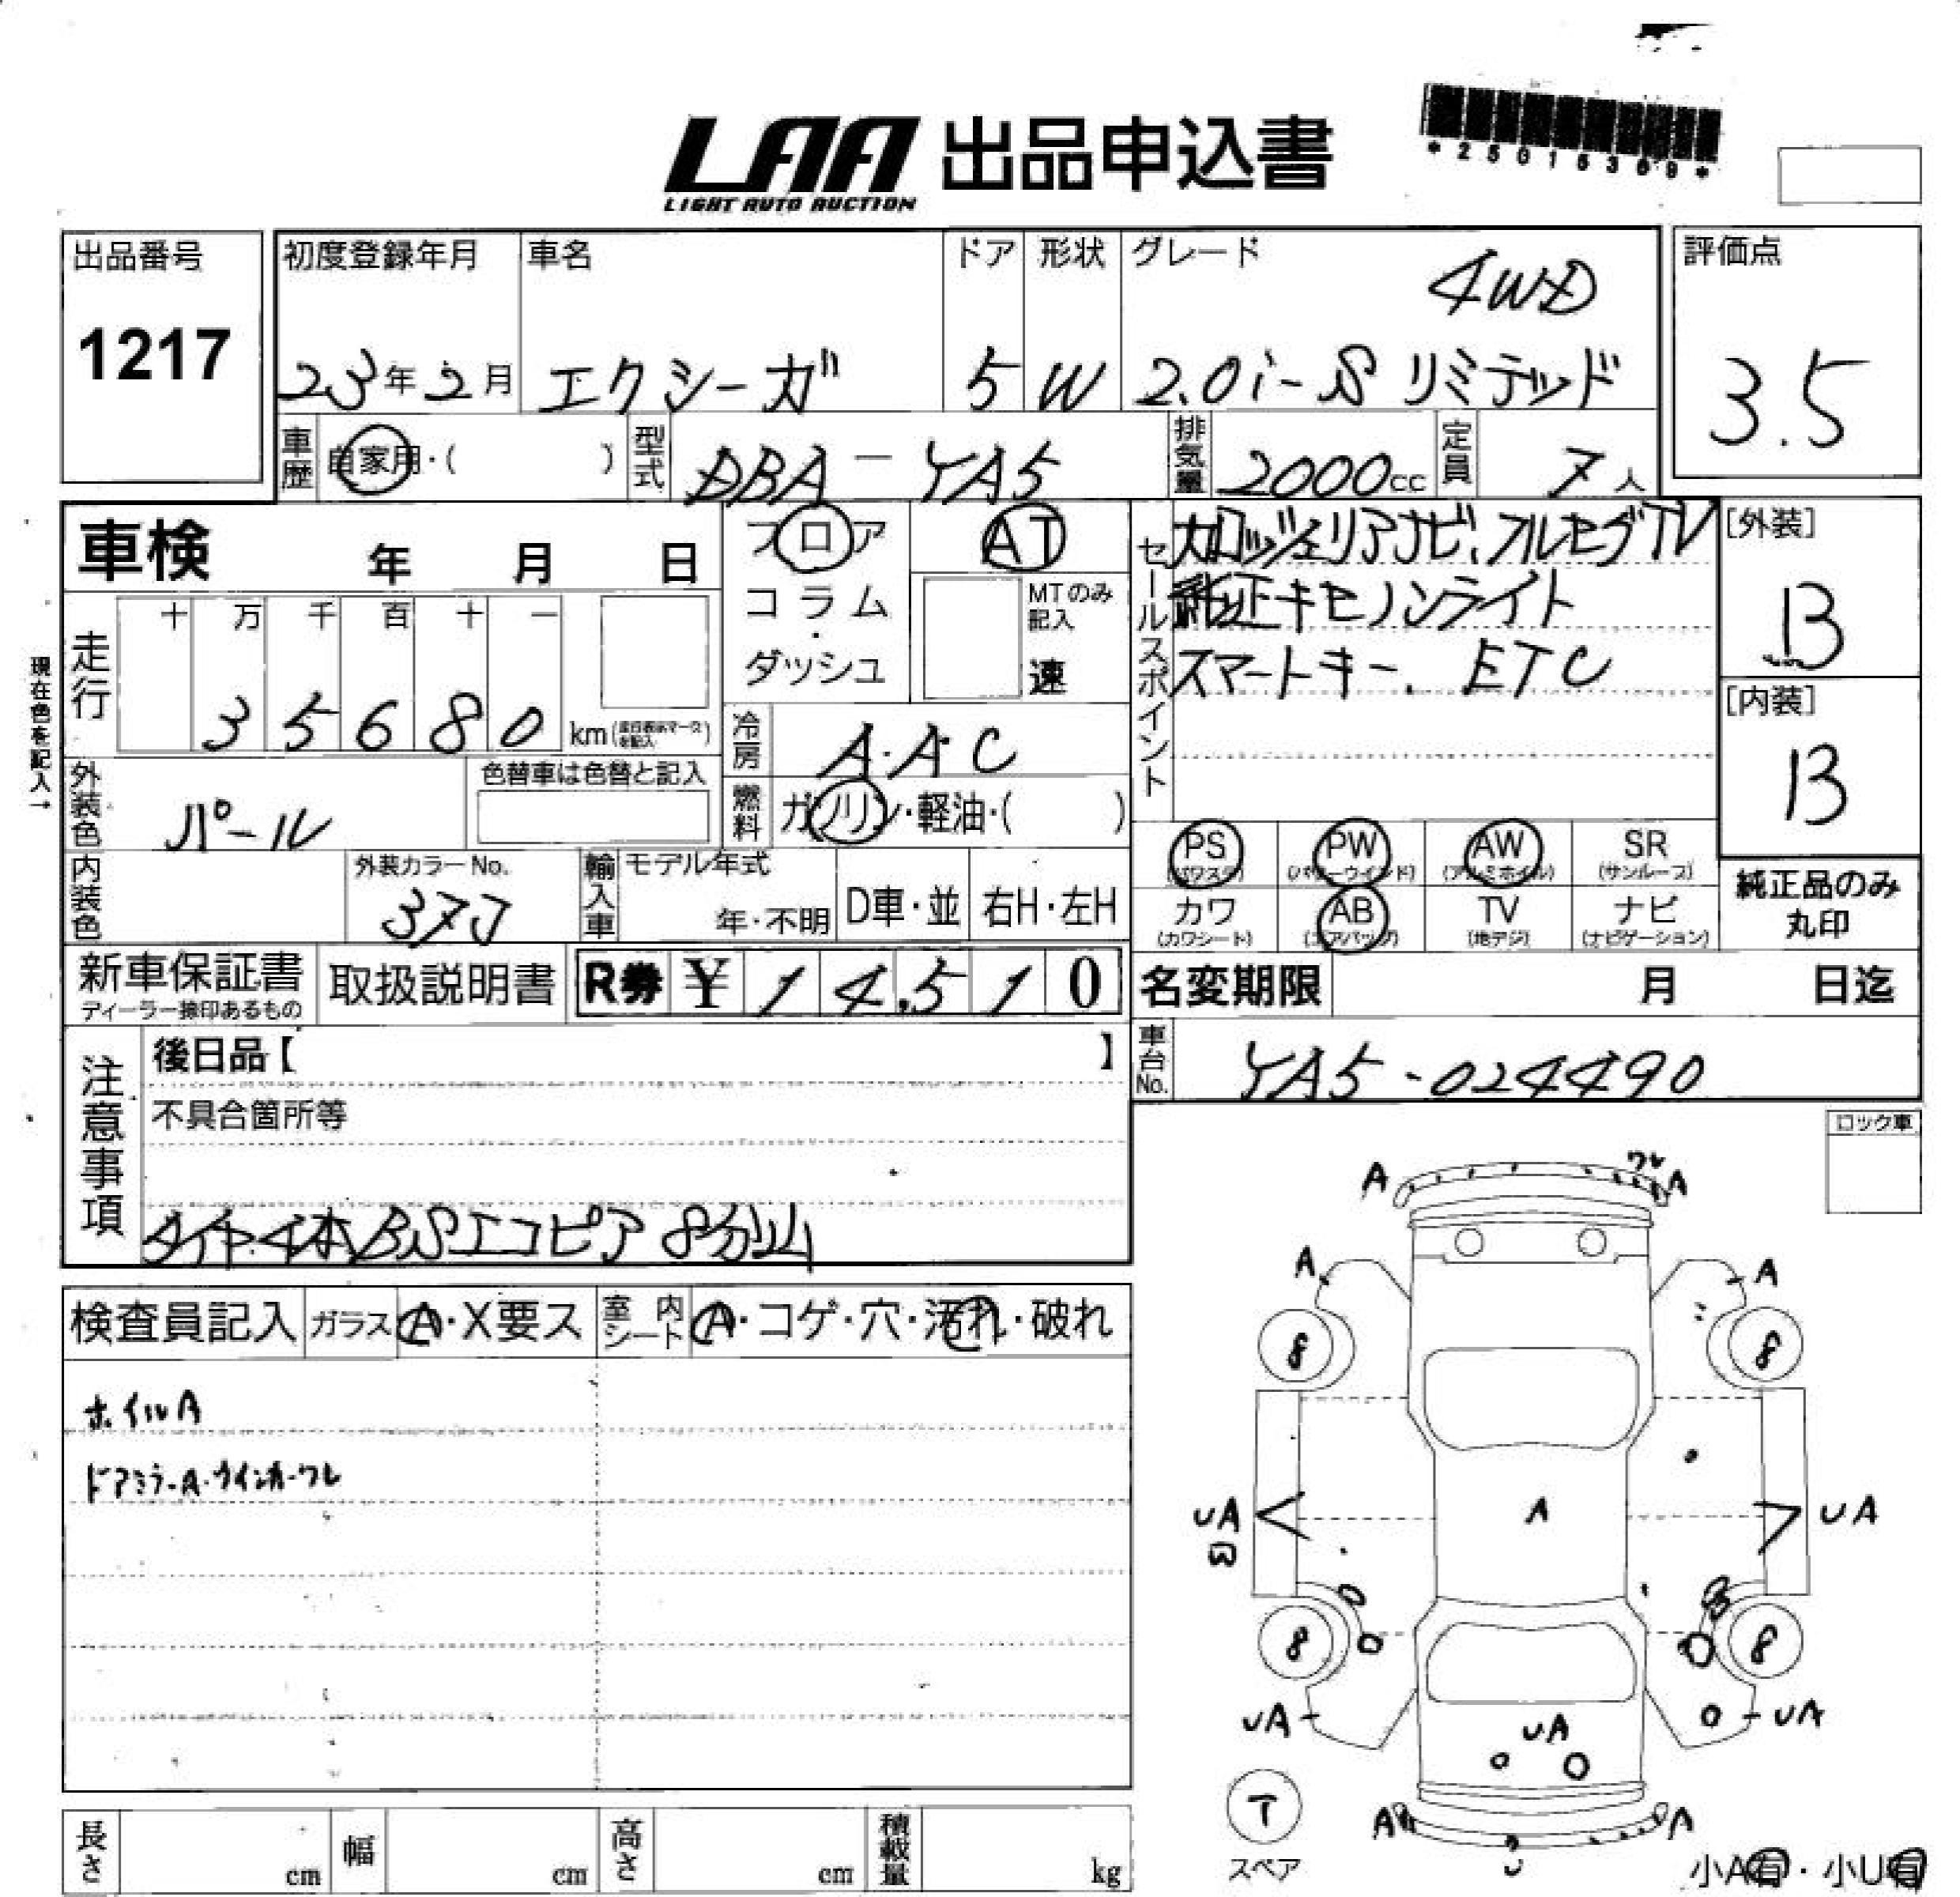 LAA 出品申込書
LIGHT AUTO AUCTION
*25016369*
出品番号
1217
初度登録年月
23年2月
車名
エクシーガ
ドア
5
形状
W
グレード
4WD
2.0i-S リミテッド
評価点
3.5
車歴
自家用・( )
型式
DBA-YA5
排気量
2000cc
定員
7人
車検 年 月 日
フロア
コラム
・
ダッシュ
AT
MTのみ記入
速
セールスポイント
カロッツェリアナビ、フルセグTV
純正キセノンライト
スマートキー、ETC
[外装]
B
[内装]
B
現在色を記入→
走行
十 万 千 百 十 一
3 5 6 8 0 km
冷房
A.A.C
燃料
ガソリン・軽油・( )
外装色
パール
色替車は色替と記入
内装色
外装カラーNo.
37J
輸入車
モデル年式
年・不明
D車・並
右H・左H
PS (パワステ)
PW (パワーウインド)
AW (アルミホイル)
SR (サンルーフ)
カワ (カワシート)
AB (エアバッグ)
TV (地デジ)
ナビ (ナビゲーション)
純正品のみ
丸印
新車保証書
ディーラー捺印あるもの
取扱説明書
R券 ¥ 14,510
名変期限 月 日迄
車台No.
YA5-024490
注意事項
後日品【 】
不具合箇所等
タイヤ4本BSエコピア8分山
ロック車
検査員記入
ガラス A・X要ス
室内シート A・コゲ・穴・汚れ・破れ
ホイルA
ドアミラーA・ウインカーワレ
A ワレ A
A A
8 8
UA A UA
W
8 8
UA UA UA
T
スペア
A U A
小A有・小U有
長さ cm
幅 cm
高さ cm
積載量 kg